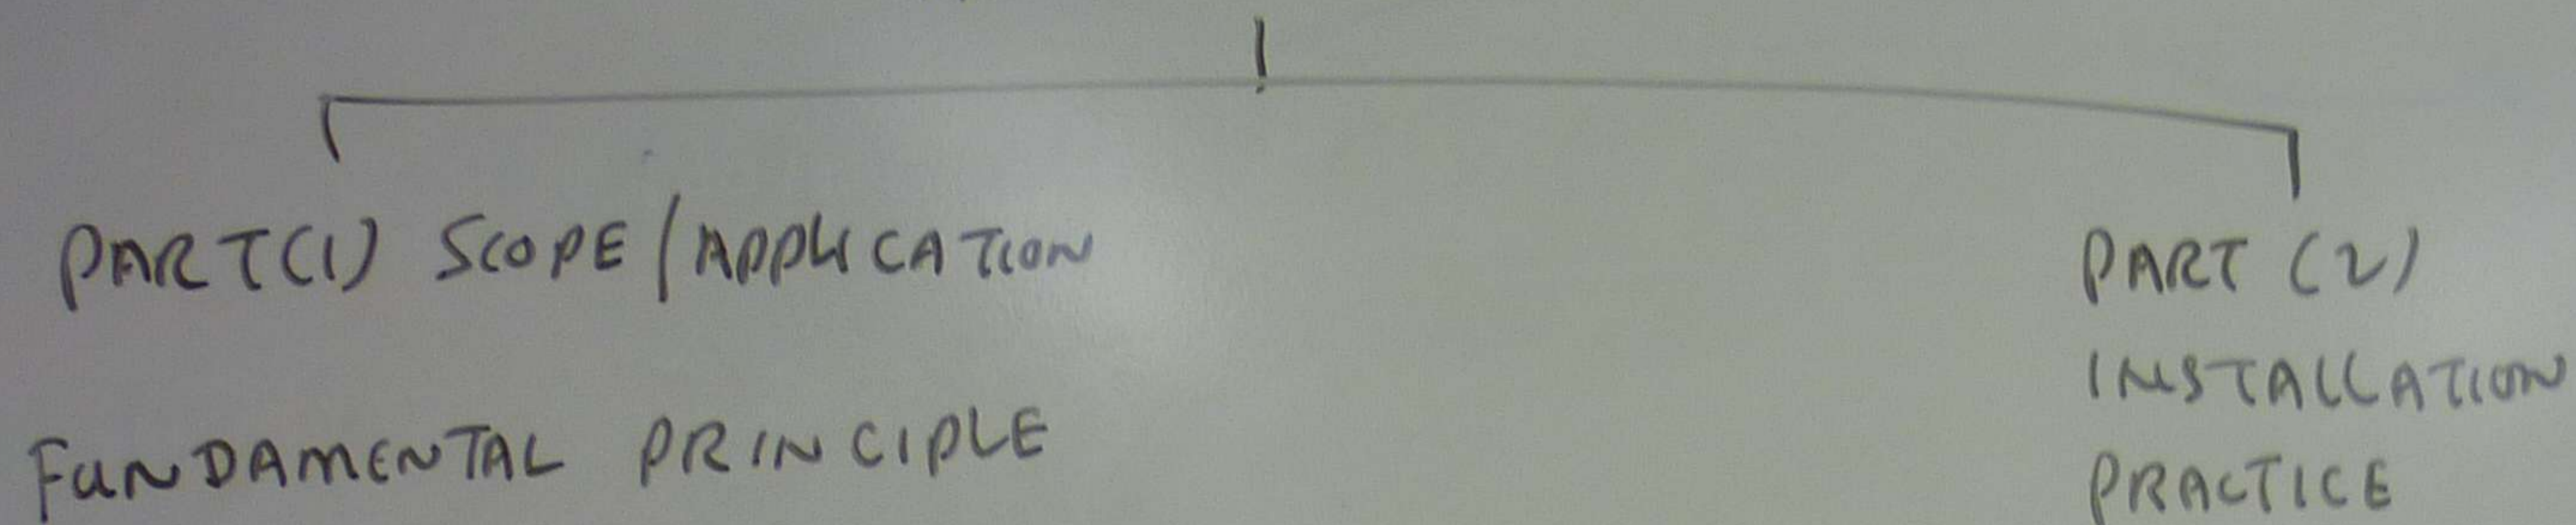 PART(1) SCOPE/APPLICATION
FUNDAMENTAL PRINCIPLE
PART (2)
INSTALLATION
PRACTICE